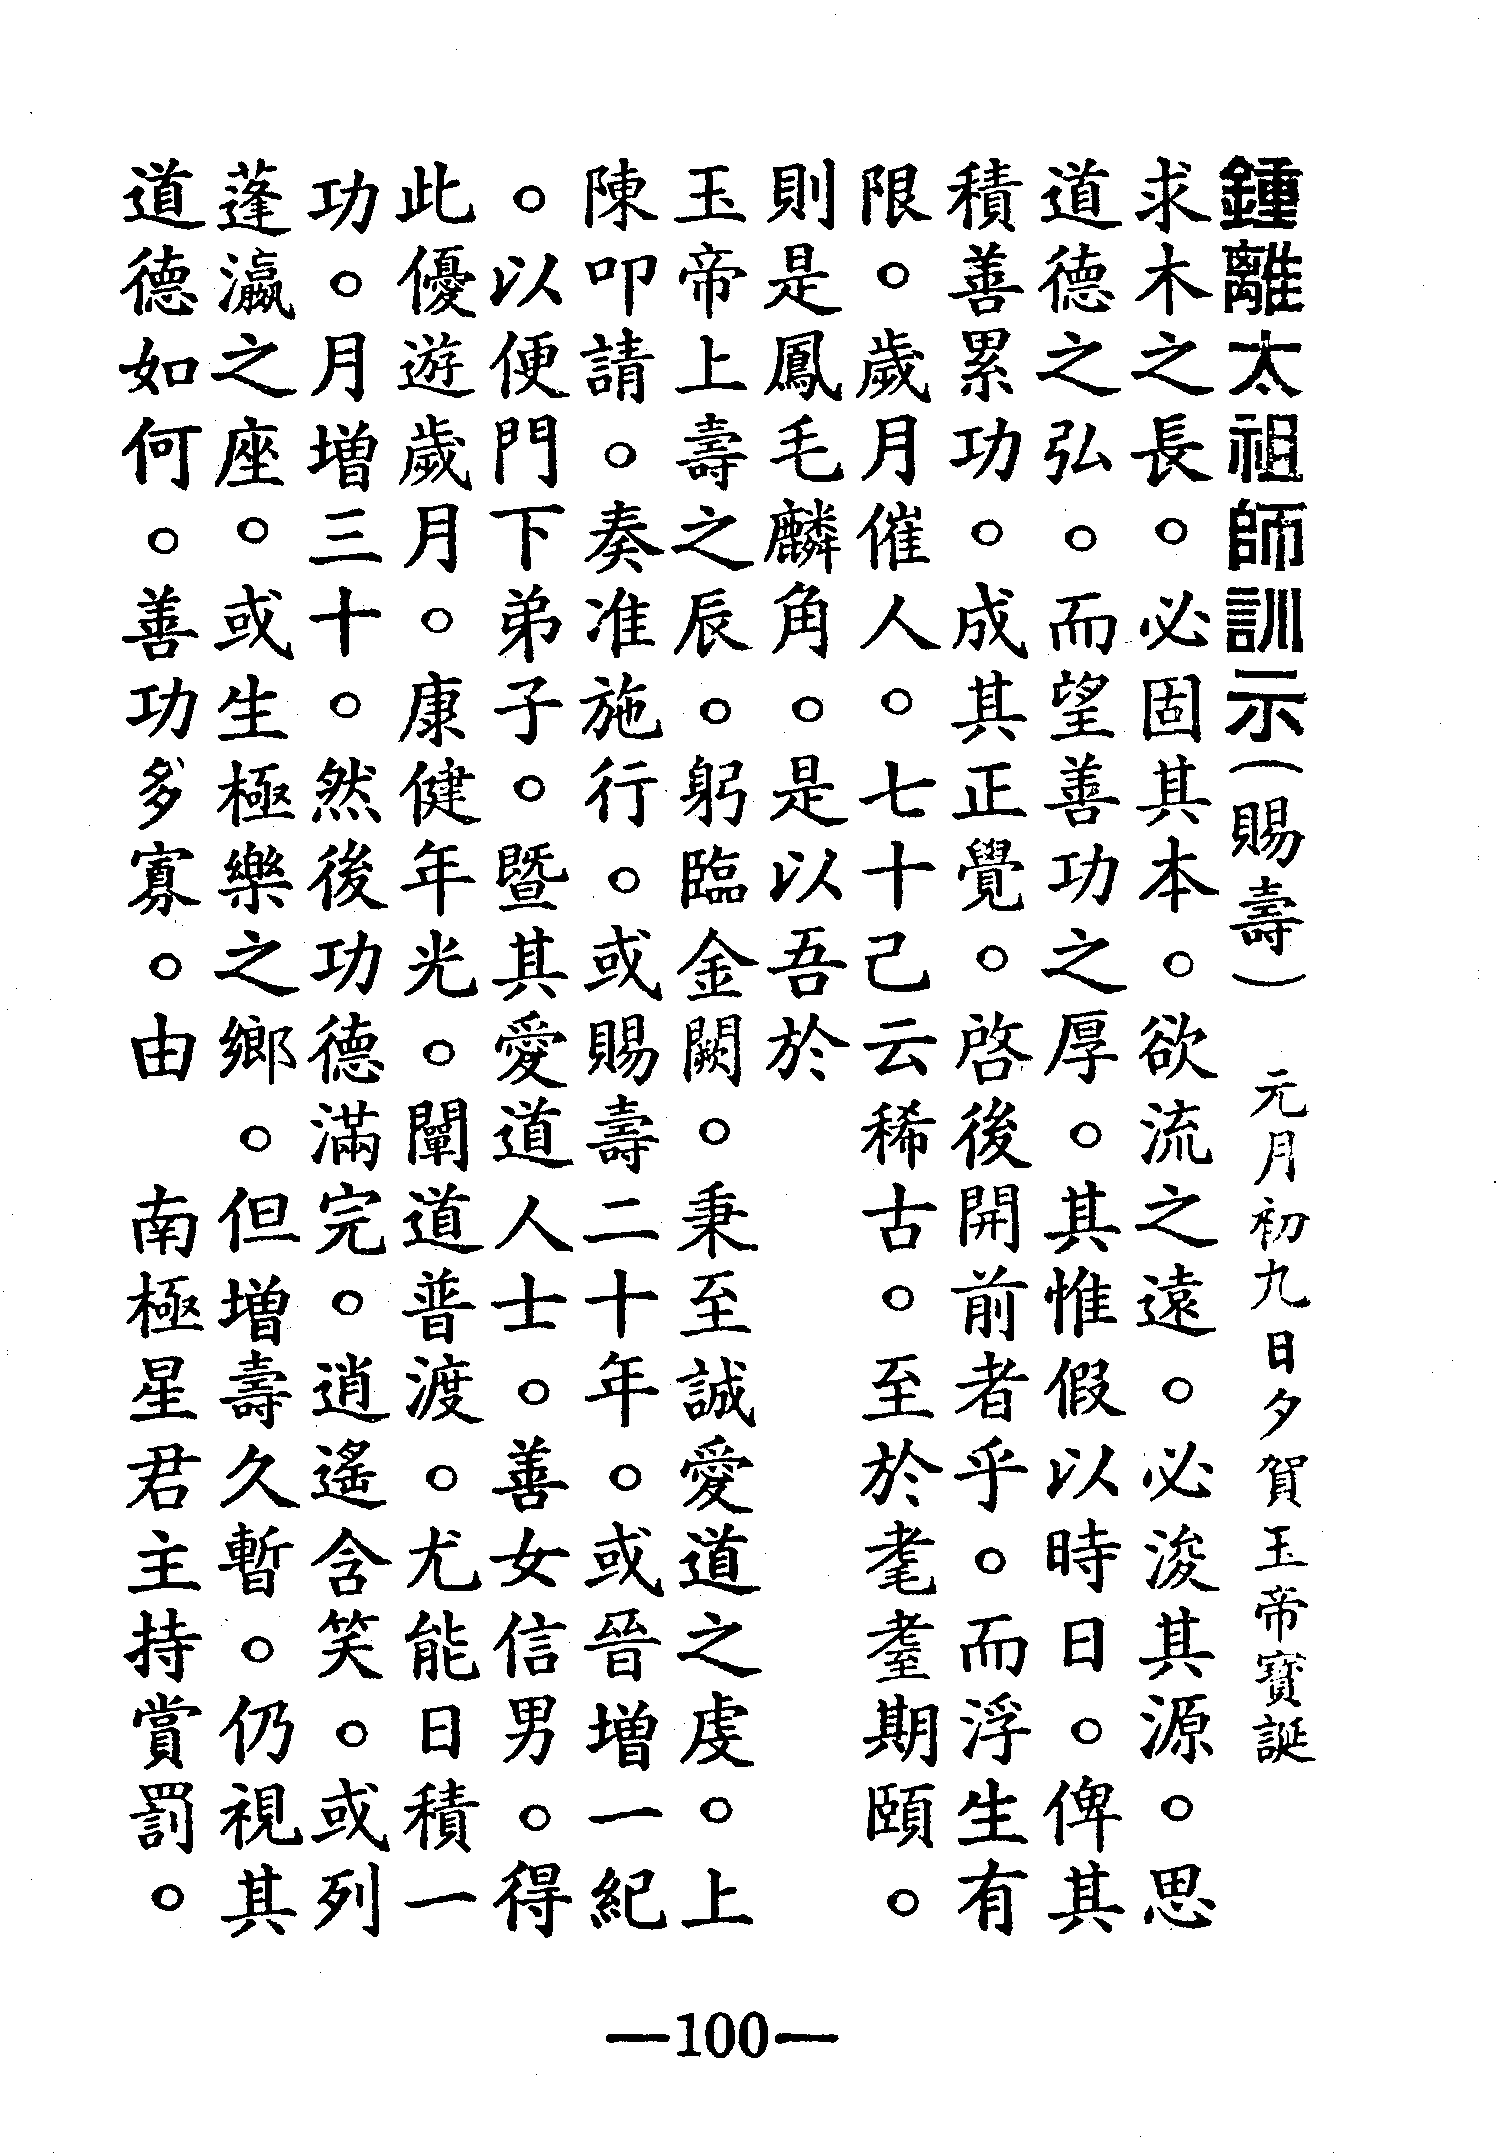 鍾離太祖師訓示（賜壽）　元月初九日夕賀玉帝寶誕
求木之長。必固其本。欲流之遠。必浚其源。思
道德之弘。而望善功之厚。其惟假以時日。俾其
積善累功。成其正覺。啓後開前者乎。而浮生有
限。歲月催人。七十己云稀古。至於耄耋期頤。
則是鳳毛麟角。是以吾於
玉帝上壽之辰。躬臨金闕。秉至誠愛道之虔。上
陳叩請。奏准施行。或賜壽二十年。或晉增一紀
。以便門下弟子。暨其愛道人士。善女信男。得
此優遊歲月。康健年光。闡道普渡。尤能日積一
功。月增三十。然後功德滿完。逍遙含笑。或列
蓬瀛之座。或生極樂之鄉。但增壽久暫。仍視其
道德如何。善功多寡。由　南極星君主持賞罰。
—100—